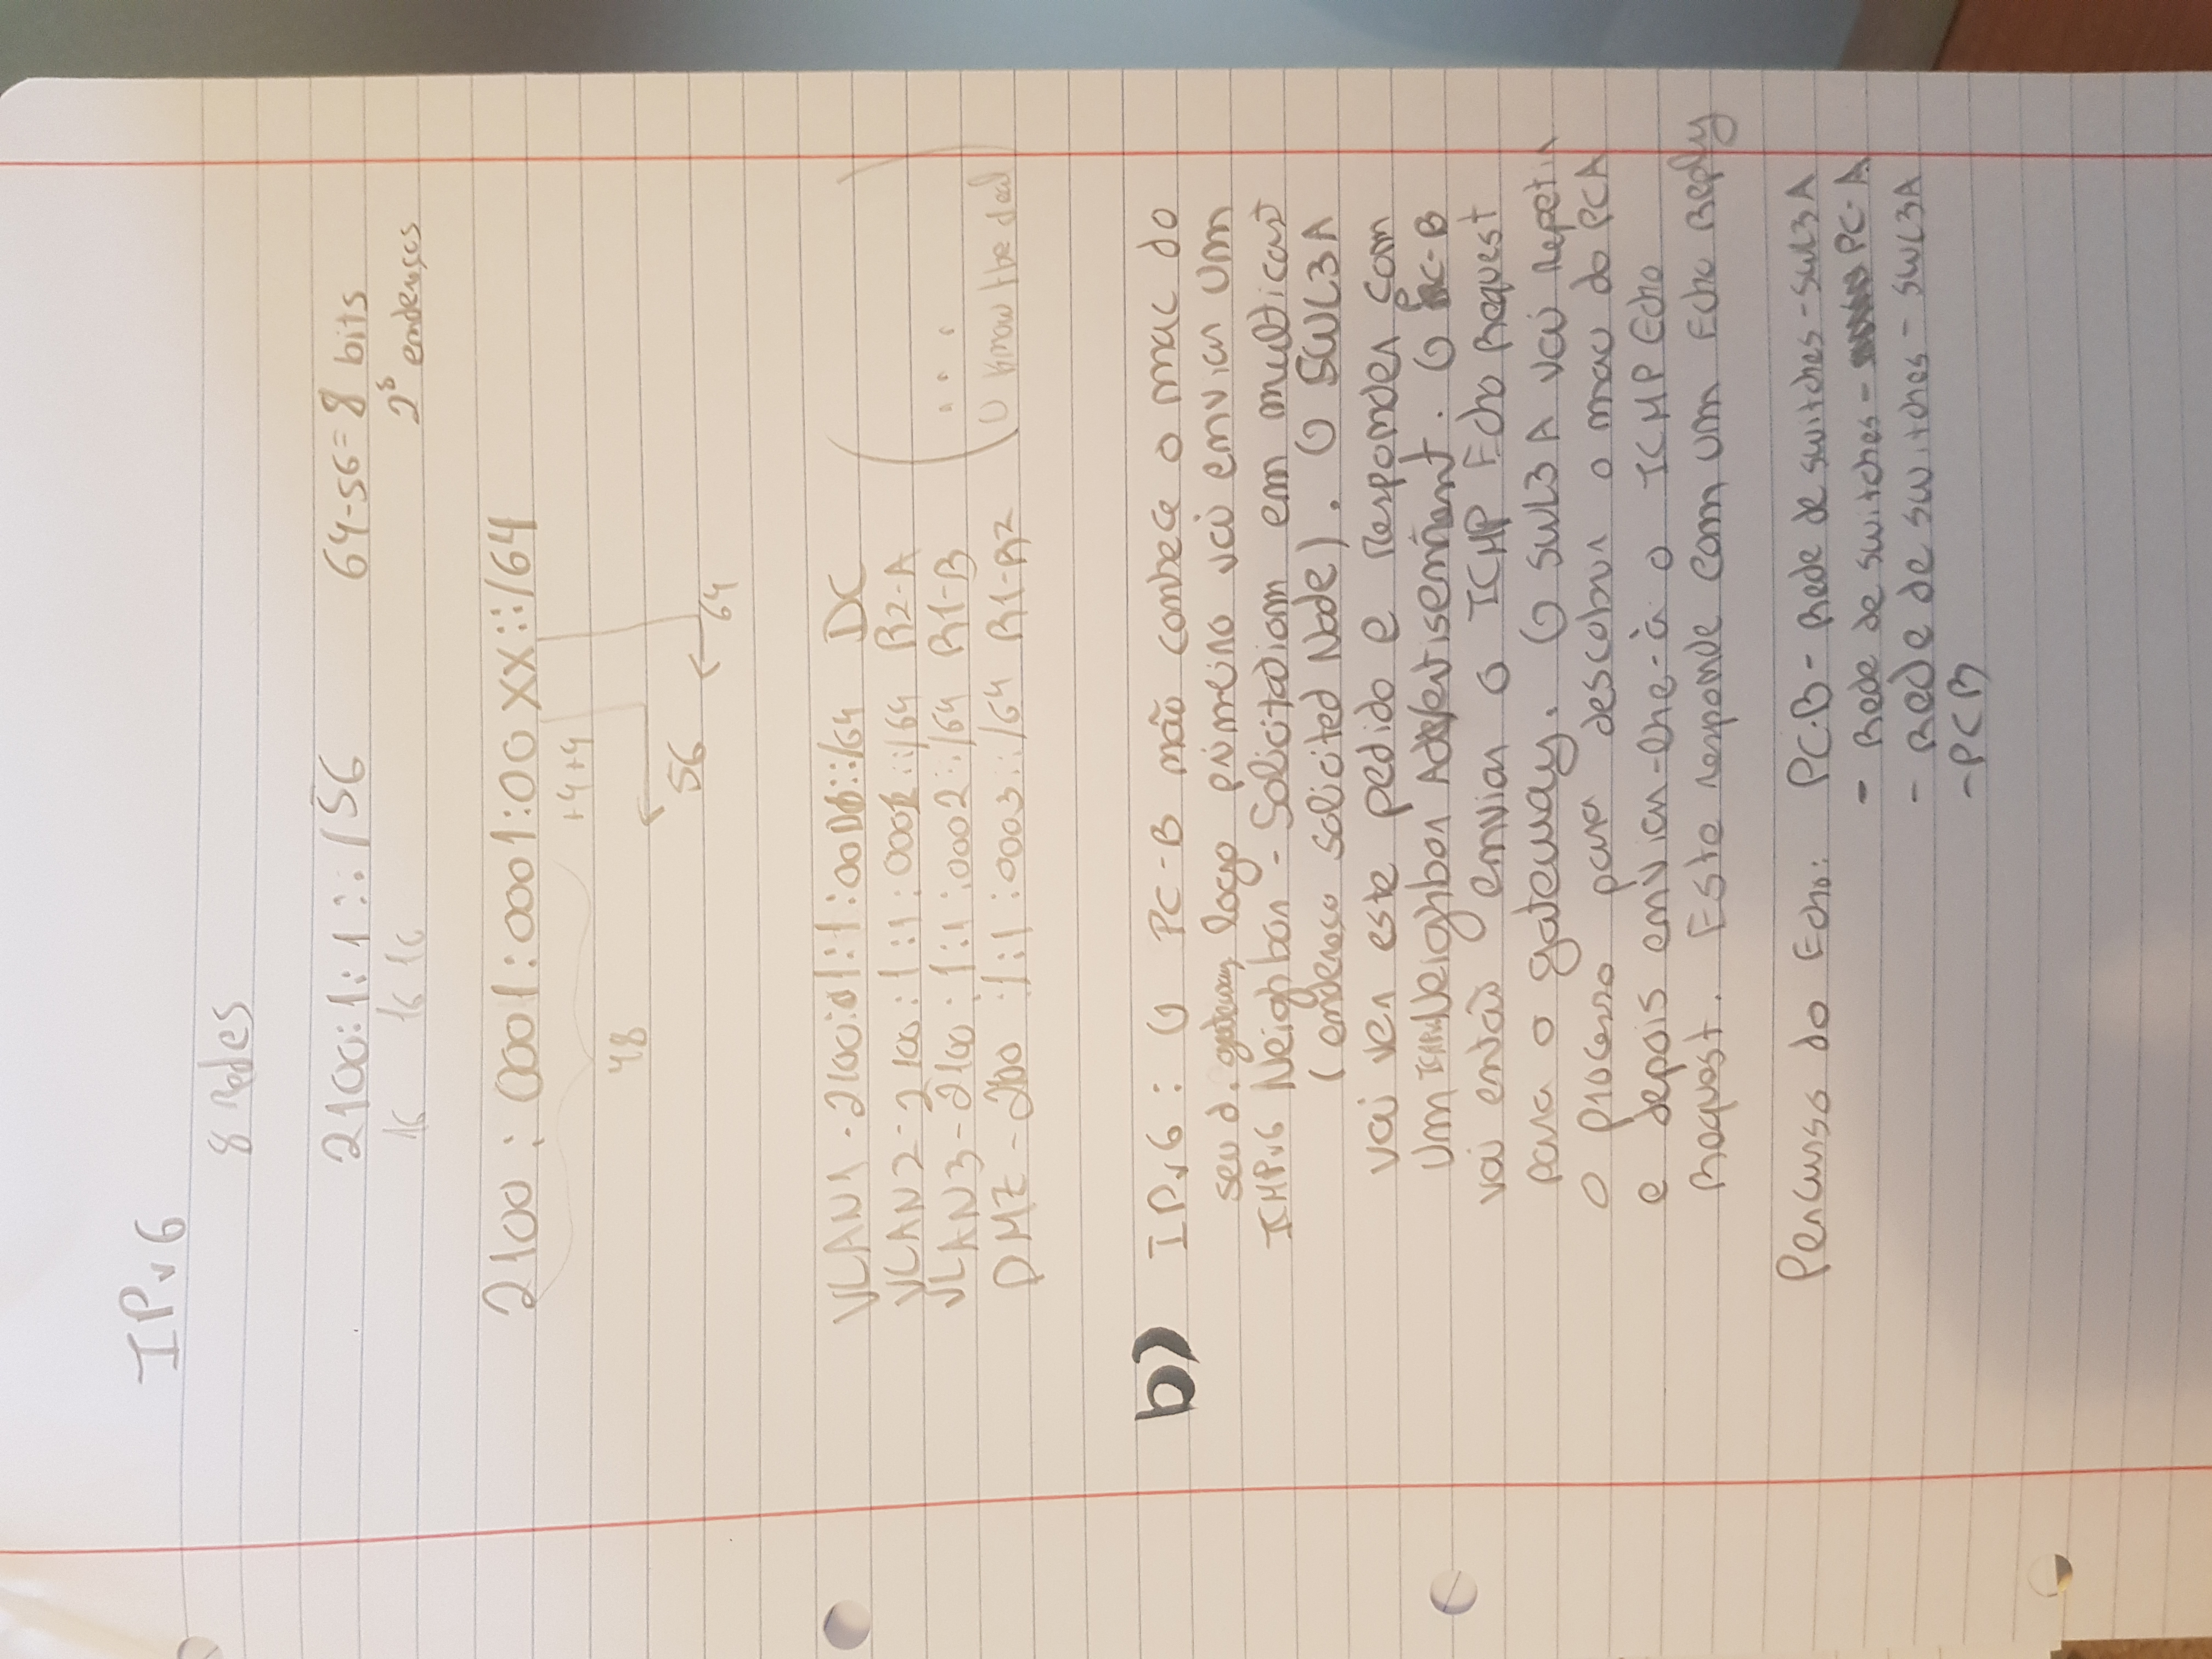 IPv6
8 Redes
2100:1:1::/56 64-56=8 bits
16 16 16 2^8 endereços
2100:0001:0001:00XX::/64
+4 +4
48
56
64
VLAN1 - 2100:1:1:0000::/64 DC
VLAN2 - 2100:1:1:0001::/64 R2-A
VLAN3 - 2100:1:1:0002::/64 R1-B ...
DMZ - 2100:1:1:0003::/64 R1-R2 U know the deal
b) IPv6: O PC-B não conhece o mac do
seu d. gateway, logo primeiro vai enviar um
ICMPv6 Neighbor-Solicitation em multicast
(endereço solicited Node). O SWL3A
vai ver este pedido e responder com
um ICMPv6 Neighbor Advertisement. O PC-B
vai então enviar o ICMP Echo Request
para o gateway. O SWL3A vai repetir
o processo para descobrir o mac do PCA
e depois enviar-lhe-à o ICMP Echo
Request. Este responde com um Echo Reply
Percurso do Echo: PC-B - Rede de switches - SWL3A
- Rede de switches - PC-A
- Rede de switches - SWL3A
- PCB